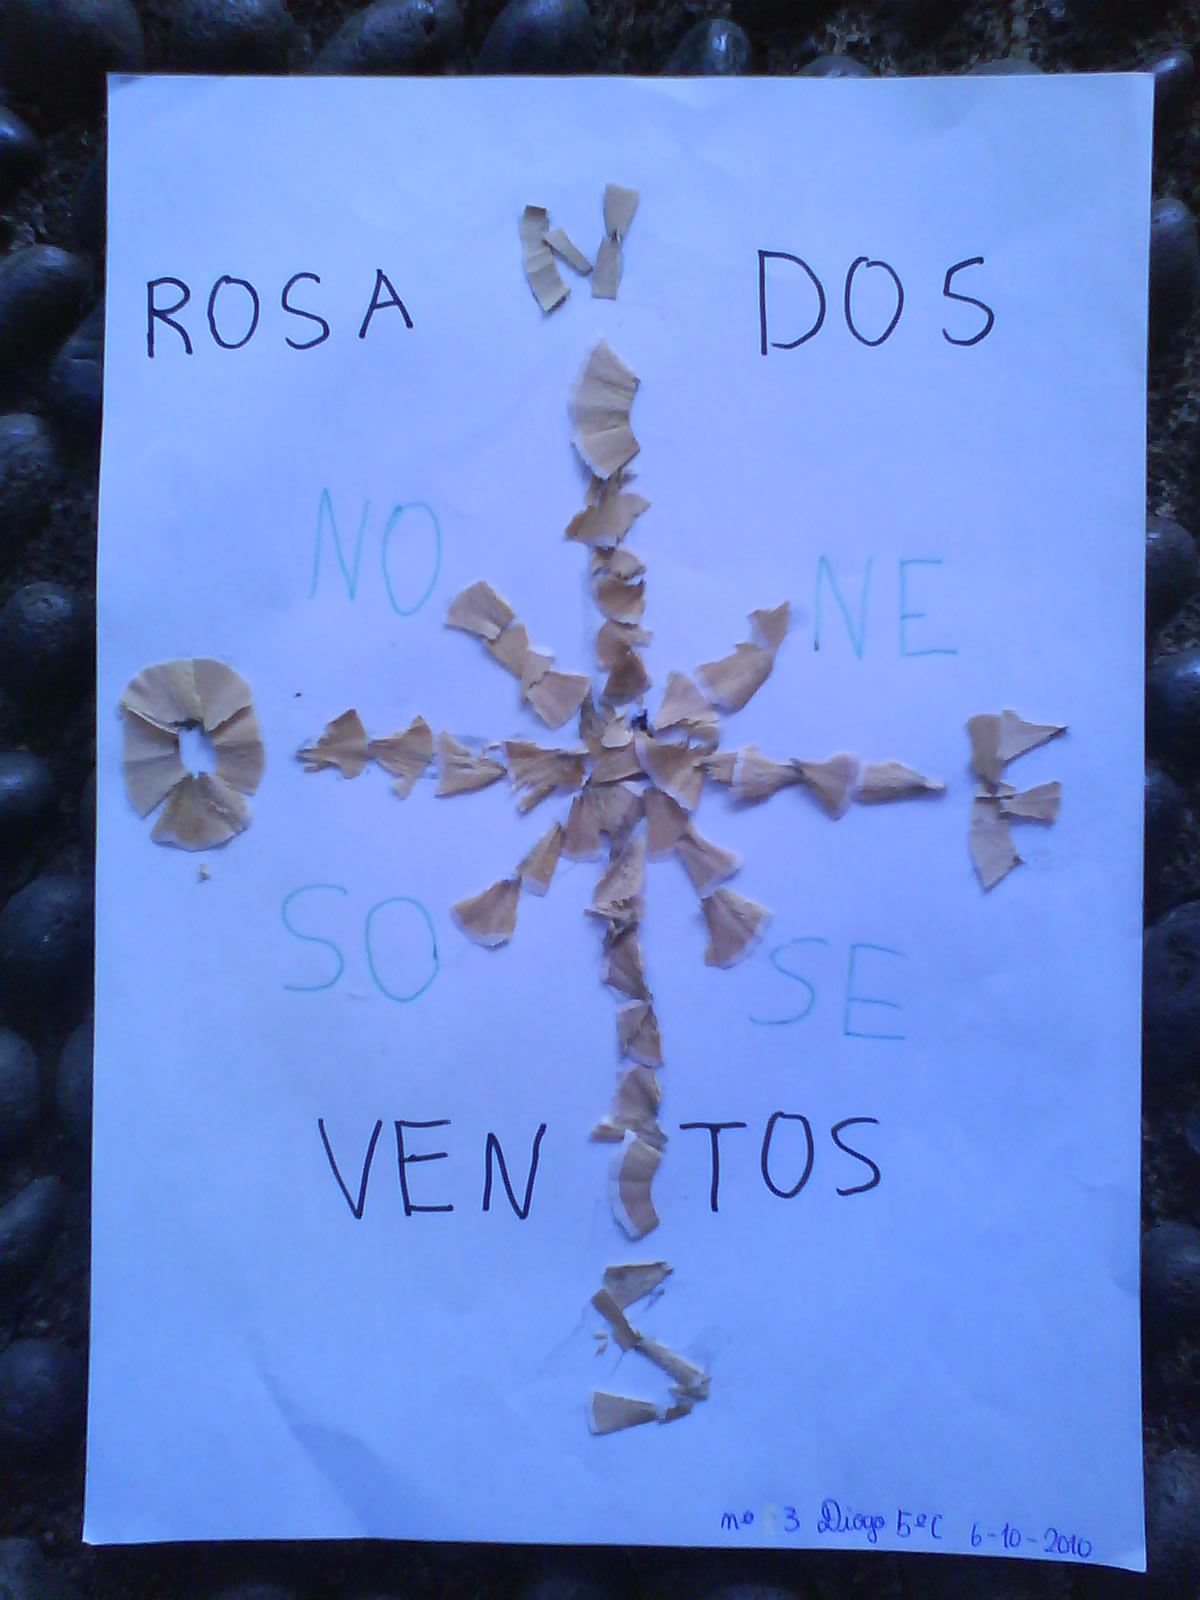 N
ROSA DOS
NO NE
O E
SO SE
VEN TOS
S
nº 3 Diogo 5ºC 6-10-2010